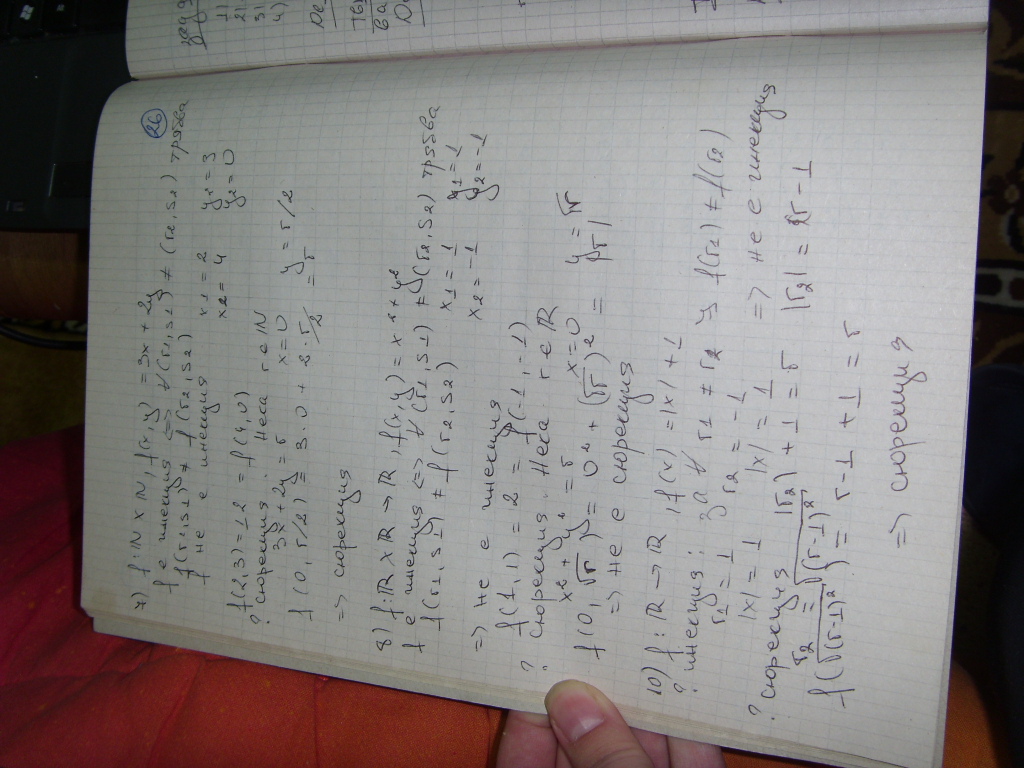 26
7) f: IN x IN, f(x,y) = 3x + 2y
f е инекция <=> ∀(r1,s1) ≠ (r2,s2) трябва
f(r1,s1) ≠ f(r2,s2)
не е инекция x1 = 2 y1 = 3
x2 = 4 y2 = 0
f(2,3) = 12 = f(4,0)
? сюрекция. Нека r ∈ IN
3x + 2y = r x = 0 y = r/2
f(0, r/2) = 3.0 + 2.r/2 = r
=> сюрекция
8) f: IR x IR -> IR, f(x,y) = x² + y²
f е инекция <=> ∀(r1,s1) ≠ (r2,s2) трябва
f(r1,s1) ≠ f(r2,s2) x1 = 1 y1 = 1
x2 = -1 y2 = -1
=> не е инекция
f(1,1) = 2 = f(-1,-1)
? сюрекция. Нека r ∈ IR
x² + y² = r x = 0 y = √r
f(0, √r) = 0² + (√r)² = |r|
=> не е сюрекция
10) f: IR -> IR, f(x) = |x| + 1
? инекция: за ∀ r1 ≠ r2 y f(r2) ≠ f(r2)
r1 = 1 r2 = -1
|x| = 1 |x| = 1 => не е инекция
? сюрекция |r2| + 1 = r |r2| = r - 1
r2 = √(r-1)²
f(√(r-1)²) = r - 1 + 1 = r
=> сюрекция